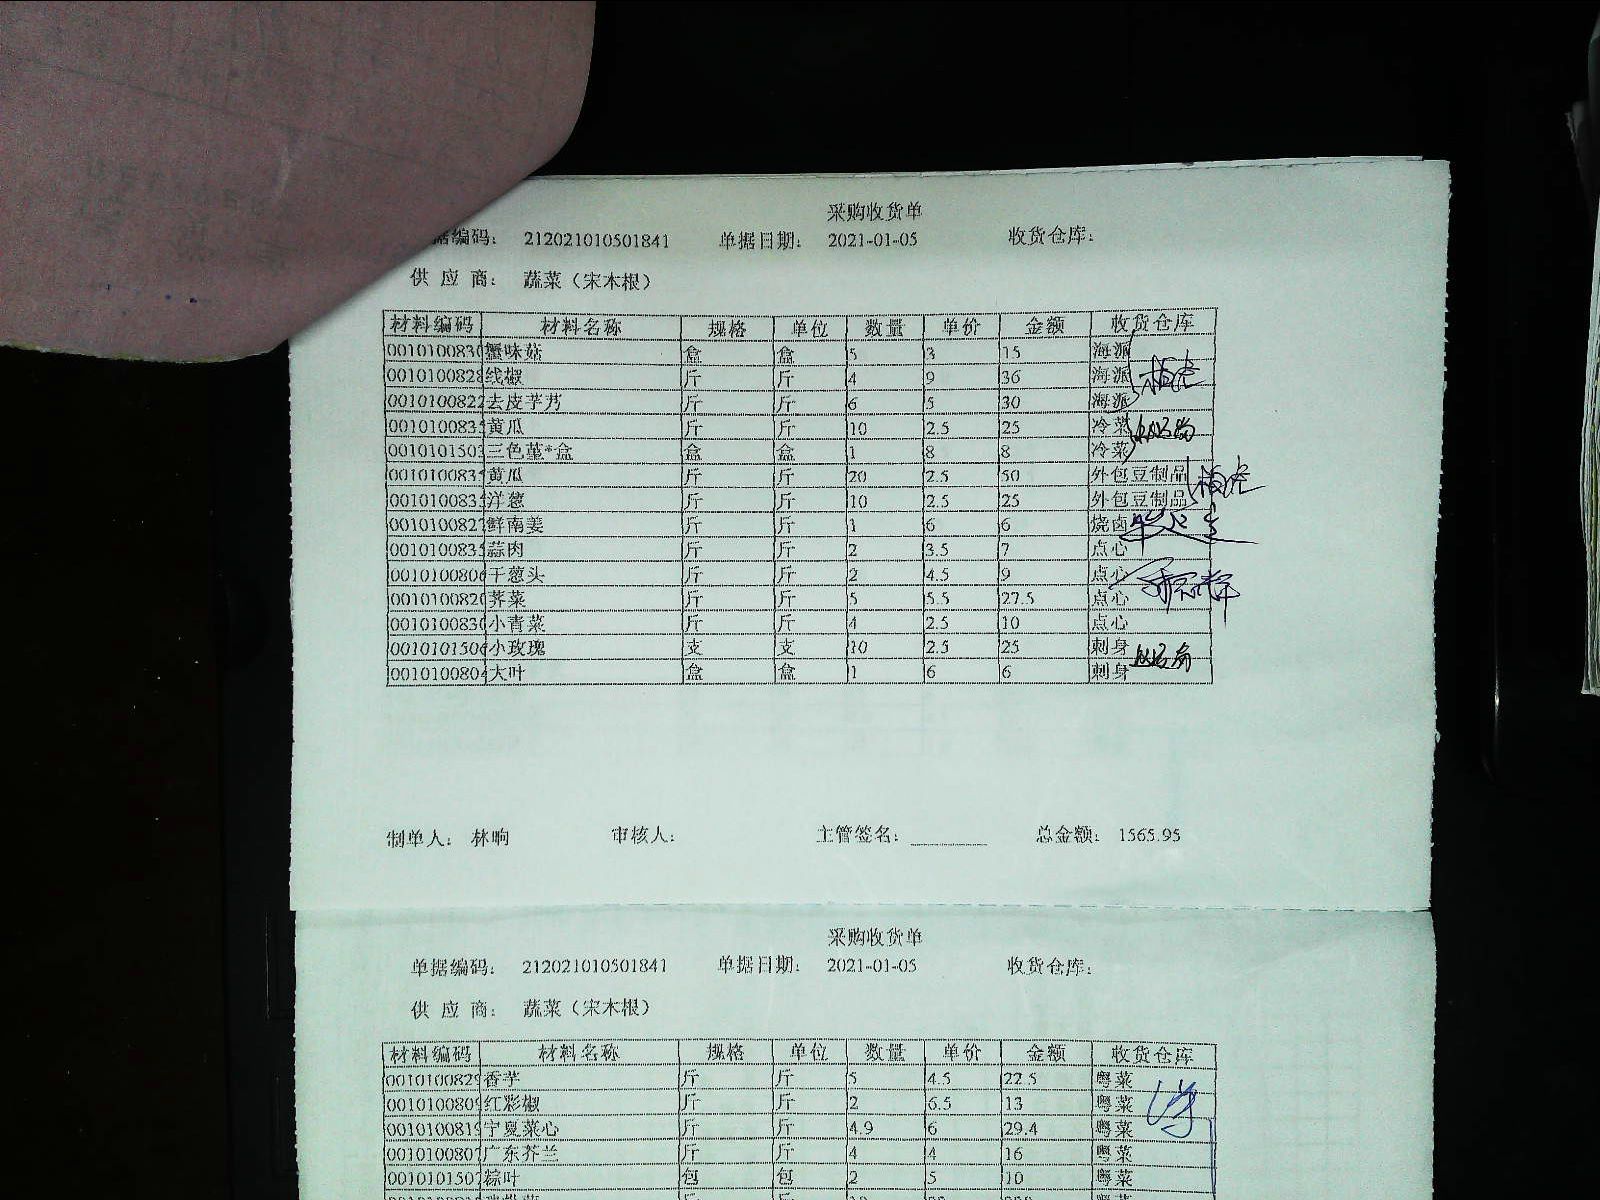 采购收货单
据编码： 212021010501841 单据日期： 2021-01-05 收货仓库：
供 应 商： 蔬菜（宋木根）
材料编码 材料名称 规格 单位 数量 单价 金额 收货仓库
0010100830 蟹味菇 盒 盒 5 3 15 海派
0010100828 线椒 斤 斤 4 9 36 海派
0010100822 去皮芋艿 斤 斤 6 5 30 海派
0010100835 黄瓜 斤 斤 10 2.5 25 冷菜
0010101503 三色堇*盒 盒 盒 1 8 8 冷菜
0010100835 黄瓜 斤 斤 20 2.5 50 外包豆制品
0010100835 洋葱 斤 斤 10 2.5 25 外包豆制品
0010100827 鲜南姜 斤 斤 1 6 6 烧卤
0010100835 蒜肉 斤 斤 2 3.5 7 点心
0010100806 干葱头 斤 斤 2 4.5 9 点心
0010100820 荠菜 斤 斤 5 5.5 27.5 点心
0010100830 小青菜 斤 斤 4 2.5 10 点心
0010101506 小玫瑰 支 支 10 2.5 25 刺身
0010100804 大叶 盒 盒 1 6 6 刺身
制单人： 林晌 审核人： 主管签名： 总金额： 1565.95
采购收货单
单据编码： 212021010501841 单据日期： 2021-01-05 收货仓库：
供 应 商： 蔬菜（宋木根）
材料编码 材料名称 规格 单位 数量 单价 金额 收货仓库
0010100829 香芋 斤 斤 5 4.5 22.5 粤菜
0010100809 红彩椒 斤 斤 2 6.5 13 粤菜
0010100819 宁夏菜心 斤 斤 4.9 6 29.4 粤菜
0010100807 广东芥兰 斤 斤 4 4 16 粤菜
0010101507 粽叶 包 包 2 5 10 粤菜